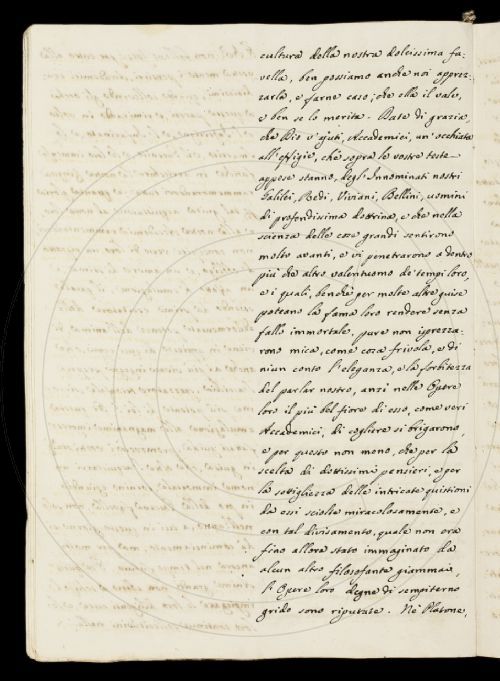 cultura della nostra dolcissima fa-
vella, ben possiamo anche noi apprez-
zarla, e farne caso; che ella il vale,
e ben se lo merita. Date di grazia,
che Dio v'ajuti, Accademici, un'occhiata
all'effigie, che sopra le vostre teste
appese stanno, degl'Innominati nostri
Galilei, Redi, Viviani, Bellini, uomini
di profondissima dottrina, e che nella
scienza delle cose grandi sentirono
molto avanti, e vi penetrarono a dentro
più che altro valentuomo de' tempi loro,
e i quali, benchè per molte altre guise
poteano la fama loro rendere senza
fallo immortale, pure non isprezza-
rono mica, come cosa frivola, e di
niun conto l'eleganza, e la forbitezza
del parlar nostro, anzi nelle Opere
loro il più bel fiore di esso, come veri
Accademici, di cogliere si brigarono,
e per questo non meno, che per la
scelta di dottissimi pensieri, e per
la sottigliezza delle intricate quistioni
da essi sciolte miracolosamente, e
con tal divisamento, quale non era
fino allora stato immaginato da
alcun altro filosofante giammai,
l'Opere loro degne di sempiterno
grido sono riputate. Nè Platone,